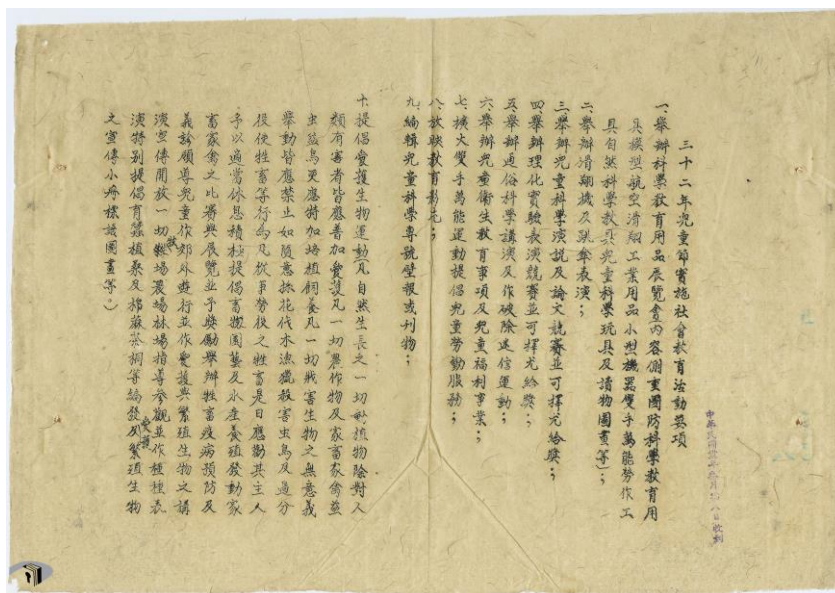 三十二年兒童節實施社會教育活動要項
一、舉辦科學教育用品展覽會內容側重國防科學教育用
具模型航空滑翔工業用品小型機器雙手萬能勞作工
具自然科學教具兒童科學玩具及讀物圖畫等；
二、舉辦滑翔機及跳傘表演；
三、舉辦兒童科學演說及論文競賽並可擇尤給獎；
四、舉辦理化實驗表演競賽並可擇尤給獎；
五、舉辦通俗科學講演及作破除迷信運動；
六、舉辦兒童衛生教育事項及兒童福利事業；
七、擴大雙手萬能運動提倡兒童勞動服務；
八、放映教育影片；
九、編輯兒童科學專號壁報或刊物；
十、提倡愛護生物運動（凡自然生長之一切動植物除對人
類有害者皆應普加愛護凡一切農作物及家畜家禽益
虫益鳥更應特加培植飼養凡一切戕害生物之無意義
舉動皆應禁止如隨意採花伐木漁獵殺害虫鳥及過分
役使牲畜等行為凡從事勞役之牲畜是日應勸其主人
予以適當休息積極提倡畜物園藝及水產養殖發動家
畜家禽之比賽與展覽並予獎勵舉辦牲畜疫病預防及
義診領導兒童作郊外遊行並作愛護與繁殖生物之講
演宣傳開放一切牧場農場林場指導參觀並作種種表
演特別提倡育蠶植桑及棉蔴茶桐等縞發及愛護繁殖生物
之宣傳小冊標語圖畫等。）